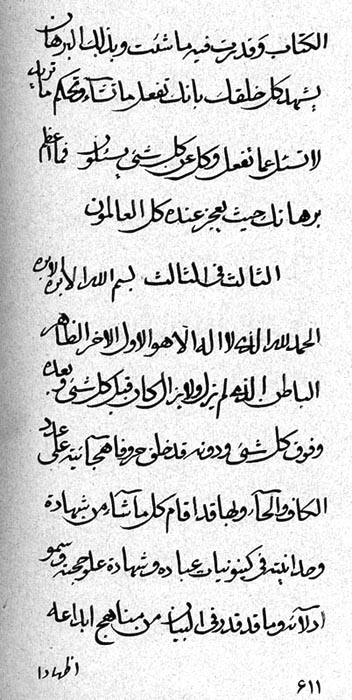 الكتاب وقدرت فيه ما شئت وبذلك البرهان
يشهد كل خلقك بانك تفعل ما تشاء وتحكم ما تريد
لا تسئل عما تفعل وكل عن كل شئ يسئلون فما اعظم
برهانك حيث يعجز عنده كل العالمون
الثالث فى الثالث بسم الله الابره الابره
الحمد لله الذى لا اله الا هو الاول الاخر الظاهر
الباطن الذى لم يزل ولا يزال كان قبل كل شئ وبعد
وفوق كل شئ ودونه قد خلق حروفا هجآئية على عدد
الكاف والحآء وبها قد اقام كل ما شآء من شهادة
وحدانيته فى كينونيات عباده وشهادة علو حجته وسمو
ادلآئه وما قد قدر فى البيان من مناهج ابداعه
اظهارا
۶۱۱